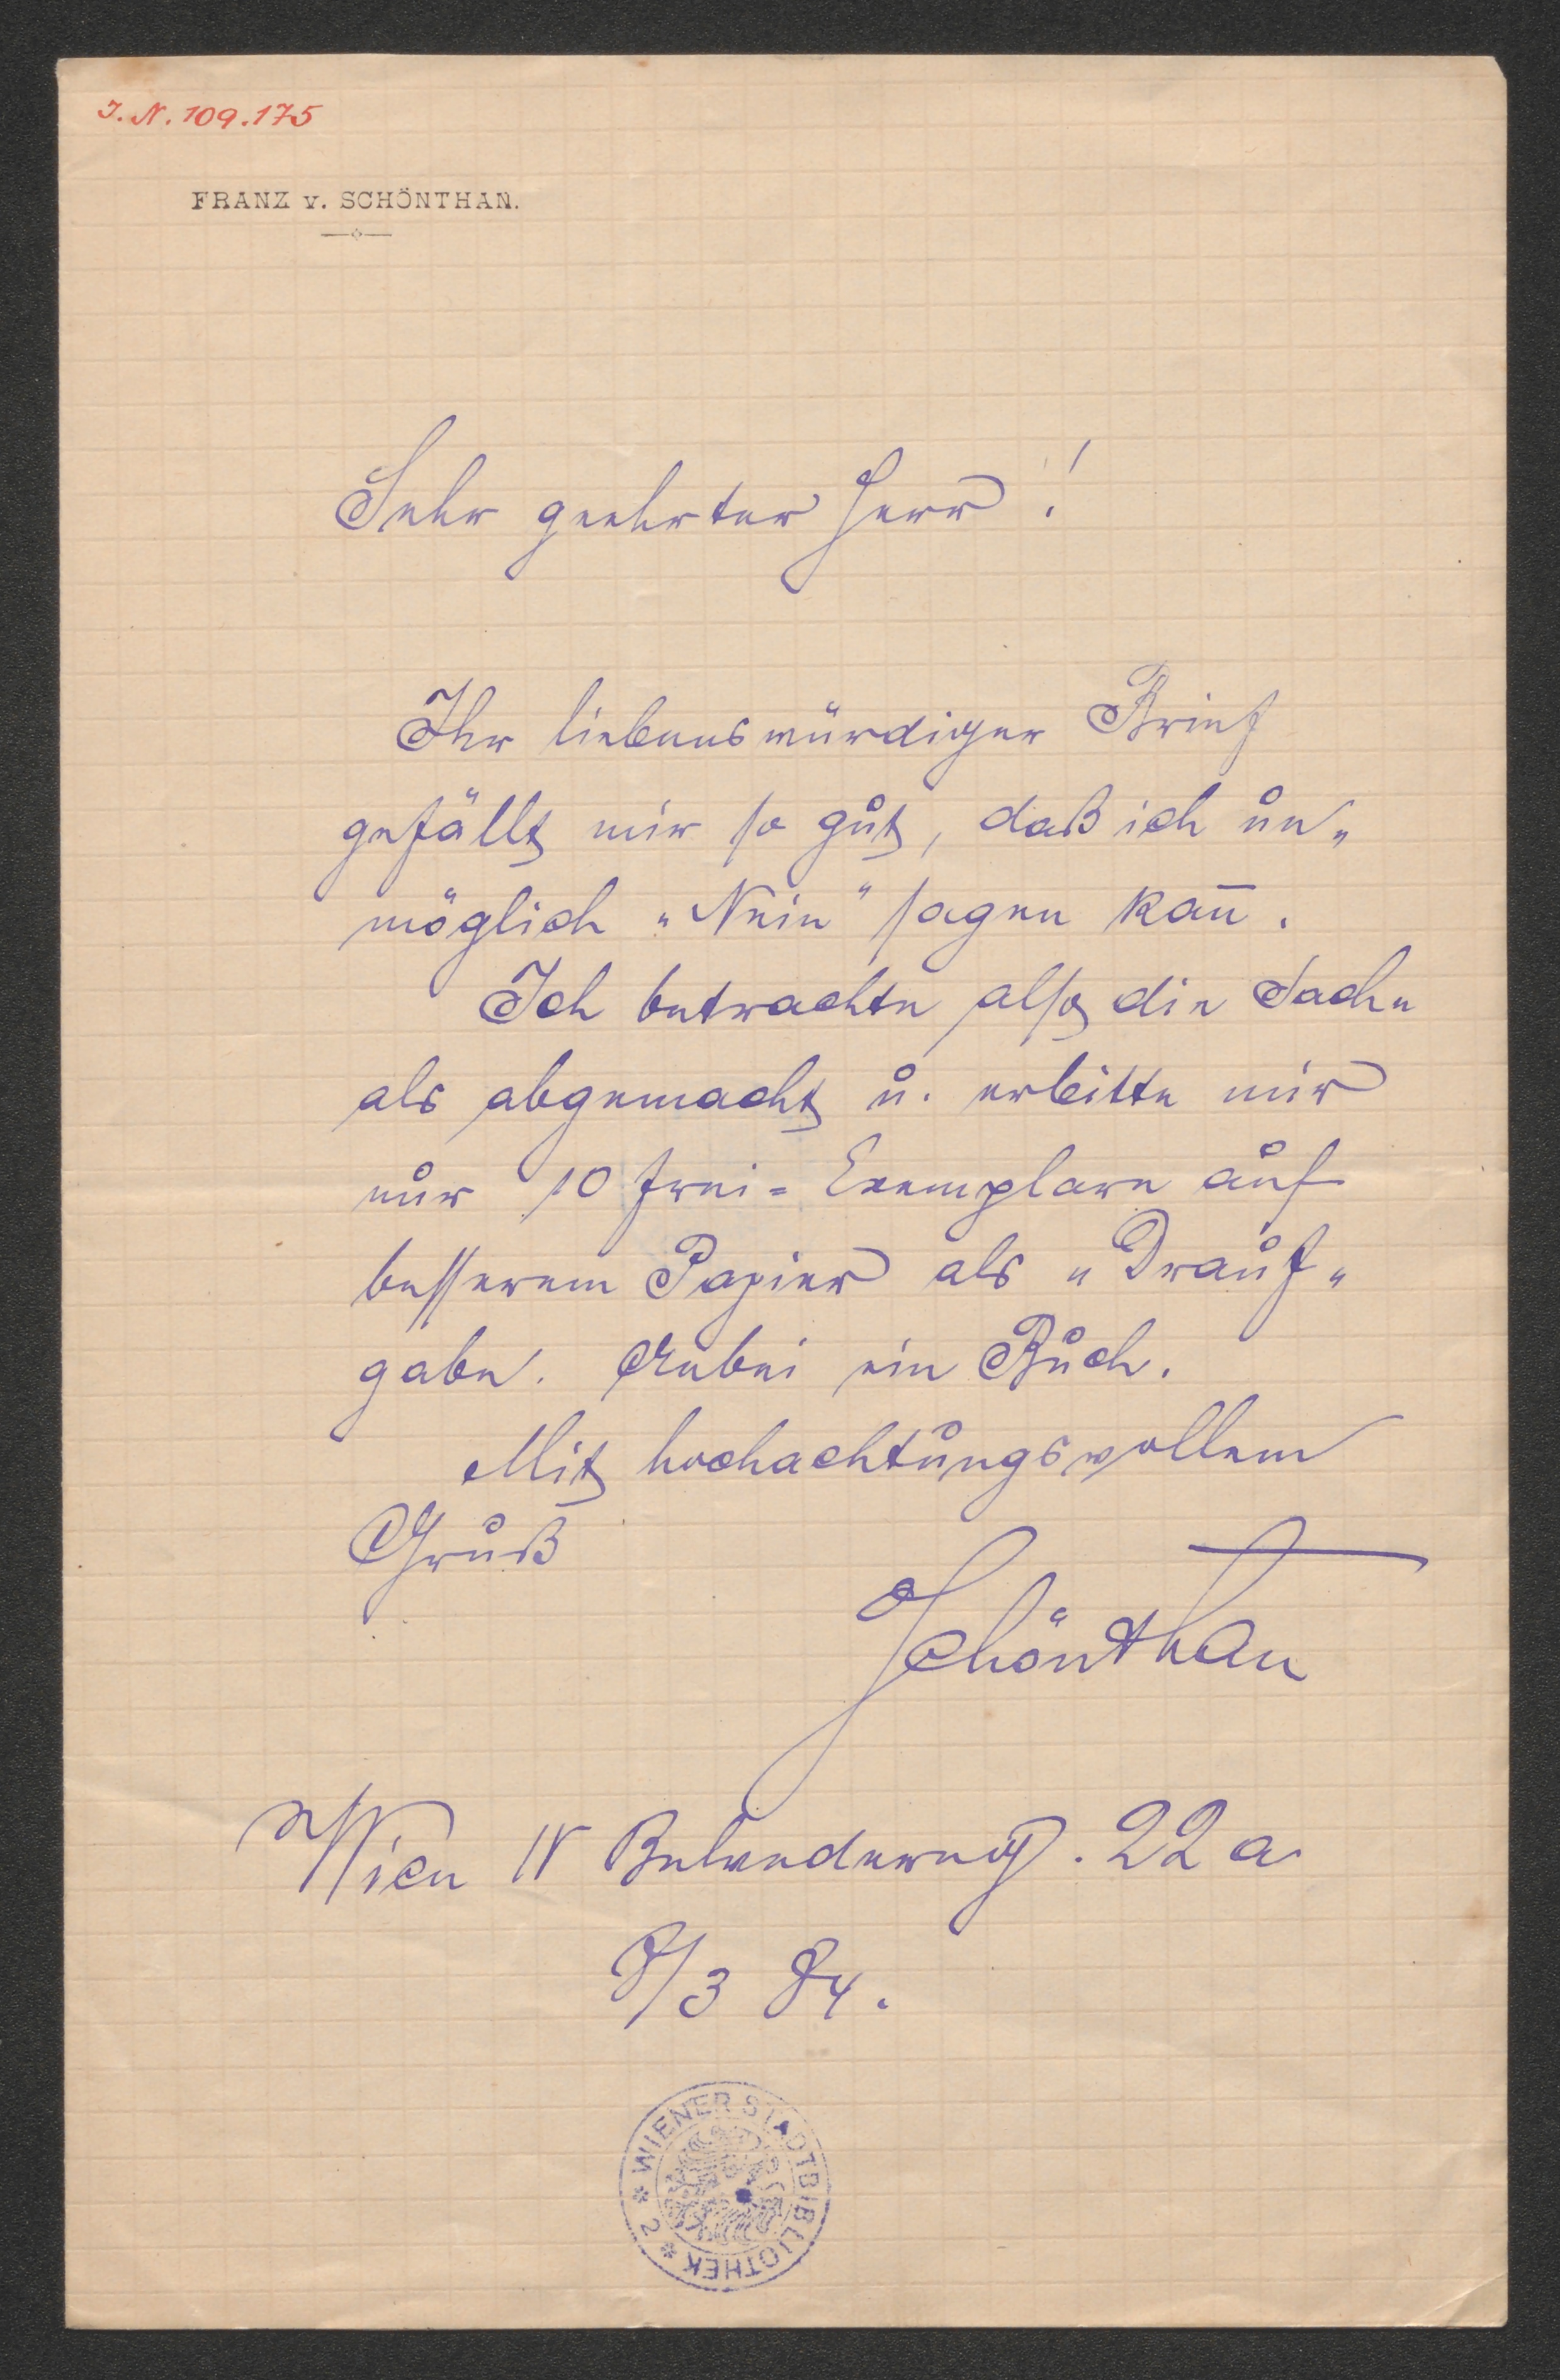 J. N. 109.175
FRANZ v. SCHÖNTHAN.
Sehr geehrter Herr!
Ihr liebenswürdiger Brief
gefällt mir so gut, daß ich un„
möglich „Nein“ sagen kan̄.
Ich betrachte also die Sache
als abgemacht u. erbitte mir
nur 10 Frei=Exemplare auf
besserem Papier als „Drauf„
gabe. Anbei ein Buch.
Mit hochachtungsvollem
Gruß
Schönthan
Wien IV Belvedereg. 22 a
8/3 84.
WIENER STADTBIBLIOTHEK * 2 *